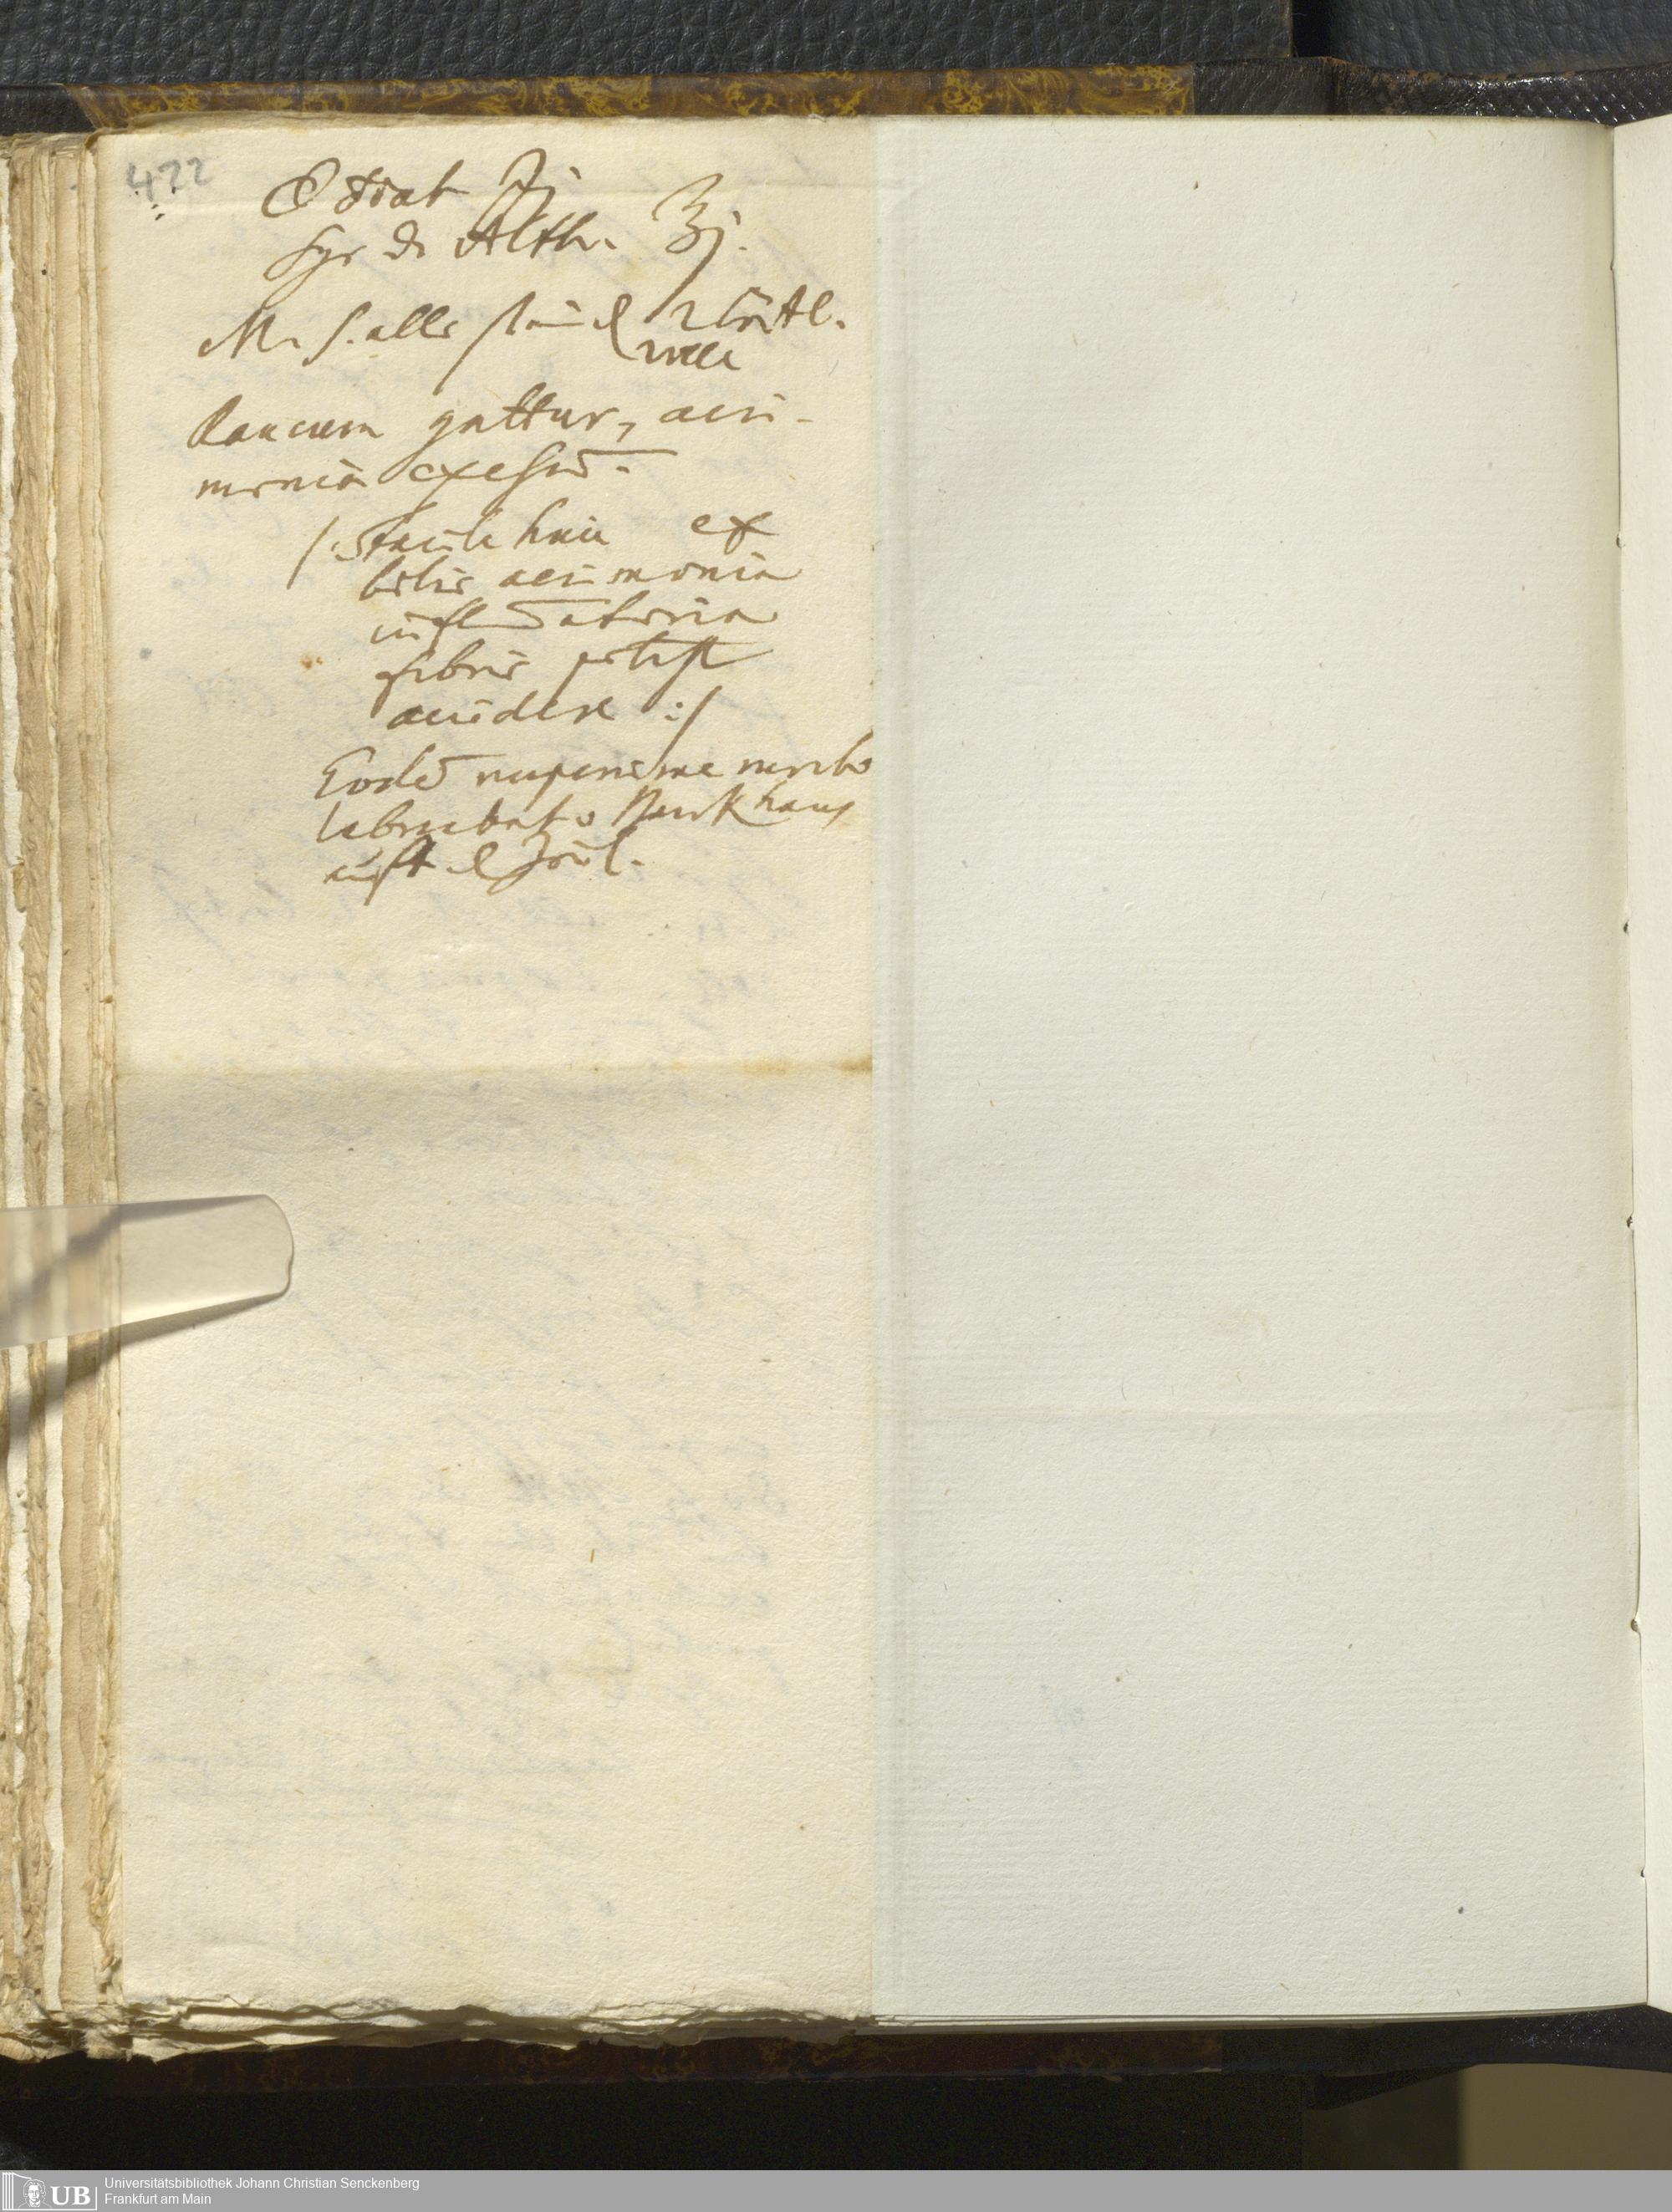 422
depurat ʒj
Syr de Alth. ℥j.
M. S. alle stund 2 löffl.
voll
Raucum guttur, acri-
monia exesum̄.
/: Facile huic ex
bilis acrimonia
inflm̄atoria
febris potest
accidere :/
Eodē nuperrime morbo
laborabat Starkhaus
auf d Zeil.
UB
Universitätsbibliothek Johann Christian Senckenberg
Frankfurt am Main